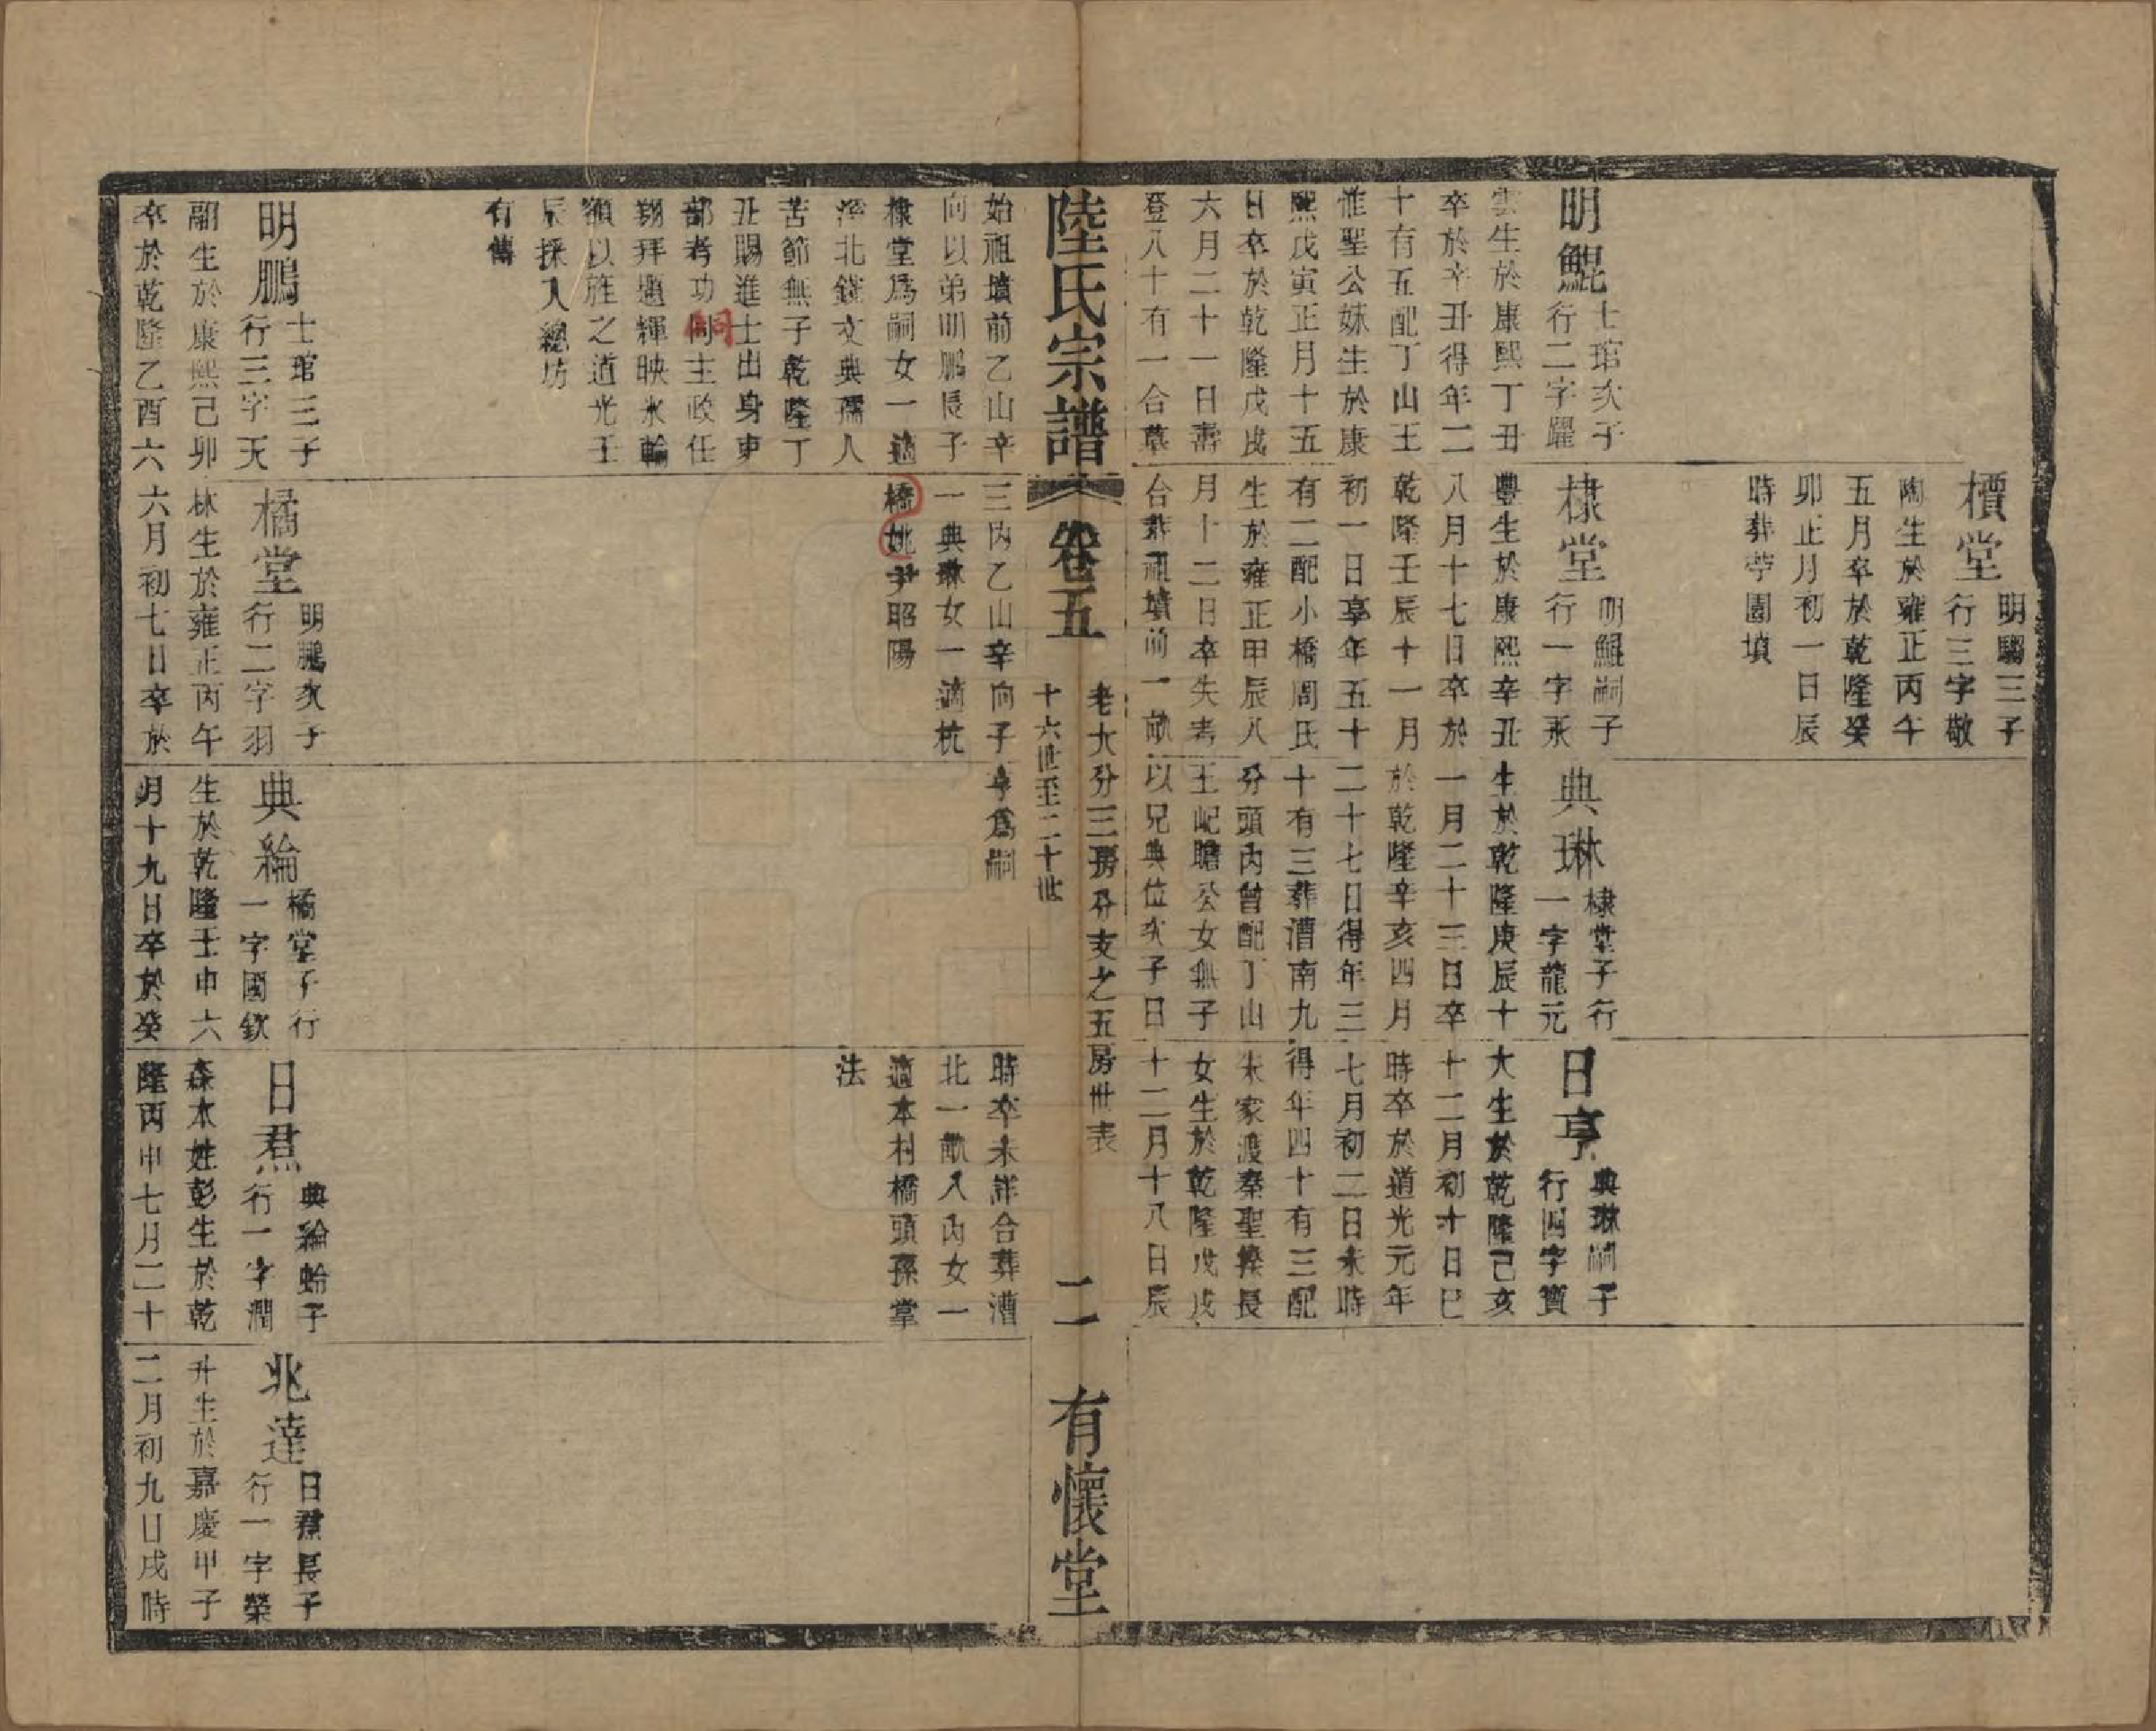 明鯤
士琯次子
行二字躍
雲生於康熙丁丑
卒於辛丑得年二
十有五配丁山王
惟聖公妹生於康
熙戊寅正月十五
日卒於乾隆戊戌
六月二十一日壽
登八十有一合墓
櫝堂
明騶三子
行三字敬
陶生於雍正丙午
五月卒於乾隆癸
卯正月初一日辰
時葬苧園墳
棣堂
明鯤嗣子
行一字永
豐生於康熙辛丑
八月十七日卒於
乾隆壬辰十一月
初一日享年五十
有二配小橋周氏
生於雍正甲辰八
月十二日卒失考
合葬祖墳前一畝
典琳
棣堂子行
一字龍元
生於乾隆庚辰十
一月二十三日卒
於乾隆辛亥四月
二十七日得年三
十有三葬漕南九
分頭內曾配丁山
王屺瞻公女無子
以兄典位次子日
日亨
典琳嗣子
行四字寶
大生於乾隆己亥
十二月初十日巳
時卒於道光元年
七月初二日未時
得年四十有三配
朱家渡秦聖榦長
女生於乾隆戊戌
十二月十八日辰
陸氏宗譜
卷五
老大分三房分支之五房世表
十六世至二十世
二
有懷堂
始祖墳前乙山辛
向以弟明鵬長子
棣堂爲嗣女一適
滆北錢文典孺人
苦節無子乾隆丁
丑賜進士出身吏
部考功司主政任
翔拜題輝映氷輪
額以旌之道光壬
辰採入總坊
有傳
三丙乙山辛向子
一典琳女一適杭
橋姚尹昭陽
亨爲嗣
時卒未詳合葬漕
北一畝八內女一
適本村橋頭孫掌
法
明鵬
士琯三子
行三字天
翮生於康熙己卯
卒於乾隆乙酉六
橘堂
明鵬次子
行二字羽
林生於雍正丙午
六月初七日卒於
典綸
橘堂子行
一字國欽
生於乾隆壬申六
月十九日卒於癸
日焄
典綸蛉子
行一字潤
森本姓彭生於乾
隆丙申七月二十
兆達
日焄長子
行一字榮
升生於嘉慶甲子
二月初九日戌時